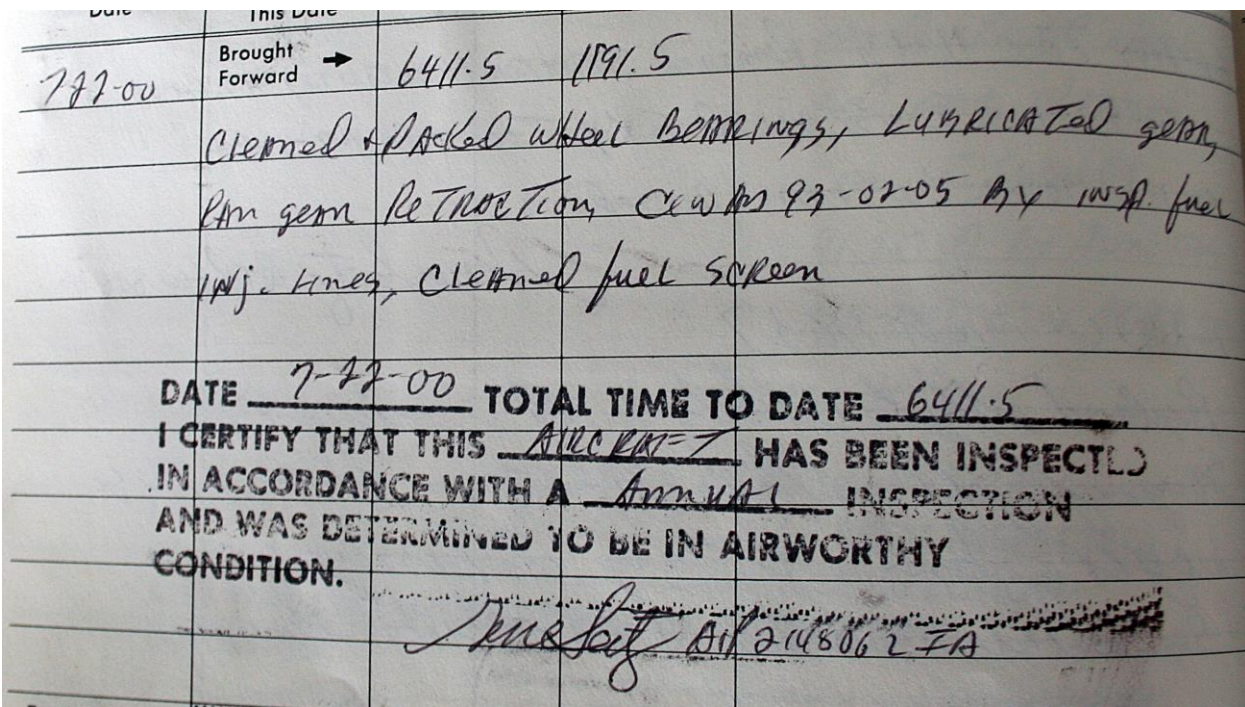 Date This Date
7-22-00 Brought Forward → 6411.5 1191.5
Cleaned & Packed wheel Bearings, Lubricated gear,
Ran gear Retraction, C/W AD 93-02-05 By insp. fuel
inj. Lines, Cleaned fuel screen
DATE 7-22-00 TOTAL TIME TO DATE 6411.5
I CERTIFY THAT THIS AIRCRAFT HAS BEEN INSPECTED
IN ACCORDANCE WITH A Annual INSPECTION
AND WAS DETERMINED TO BE IN AIRWORTHY
CONDITION.
2148062 IA